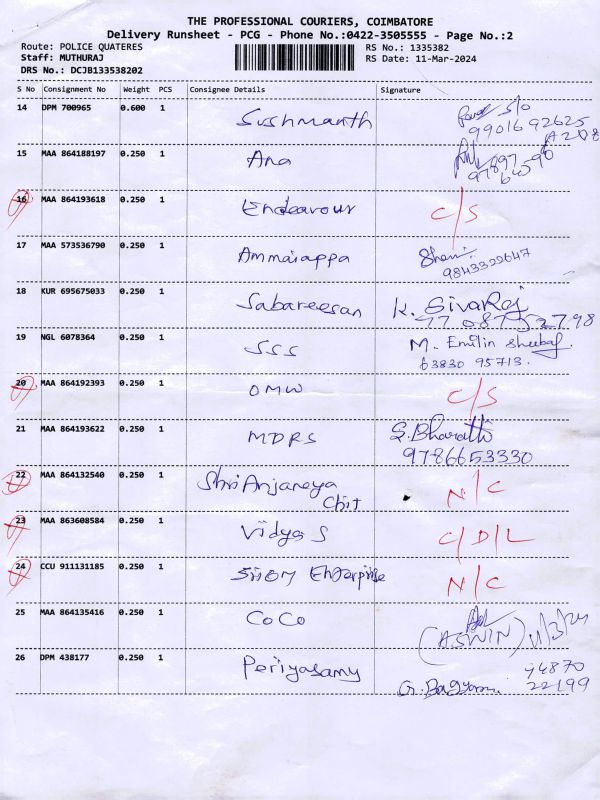 THE PROFESSIONAL COURIERS, COIMBATORE
Delivery Runsheet - PCG - Phone No.:0422-3505555 - Page No.:2
Route: POLICE QUATERES RS No.: 1335382
Staff: MUTHURAJ RS Date: 11-Mar-2024
DRS No.: DCJB133538202
S No Consignment No Weight PCS Consignee Details Signature
14 DPM 700965 0.600 1 Sushmanth S/o
9901692625
A208
15 MAA 864188197 0.250 1 Ana
16 MAA 864193618 0.250 1 Endeavour C/S
17 MAA 573536790 0.250 1 Ammaiappa
9843322647
18 KUR 695675033 0.250 1 Sabareesan K. SivaRaj
19 NGL 6078364 0.250 1 SSS M. Emilin
63830 95713.
20 MAA 864192393 0.250 1 OMW C/S
21 MAA 864193622 0.250 1 MDRS S.Bharathi
9786653330
22 MAA 864132540 0.250 1 Shri Anjaneya
Chit N/C
23 MAA 863608584 0.250 1 Vidya S C/D/L
24 CCU 911131185 0.250 1 Enterprise N/C
25 MAA 864135416 0.250 1 CoCo
(ASWIN) 11/3/24
26 DPM 438177 0.250 1 Periyasamy 94870
22199